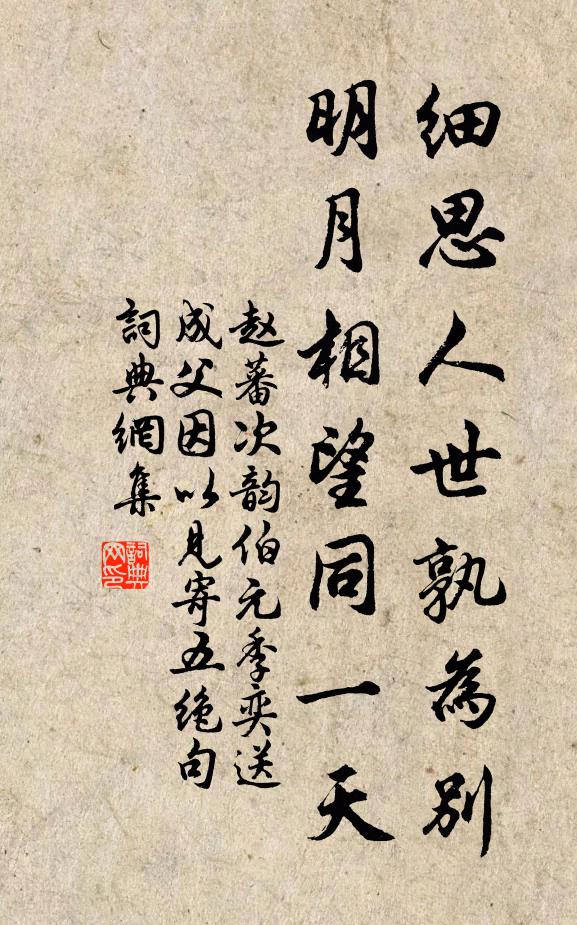 細思人世孰為別
明月相望同一天
赵蕃次韵伯元季奕送
成父因以見寄五绝句
詞典網集
詞典
网印